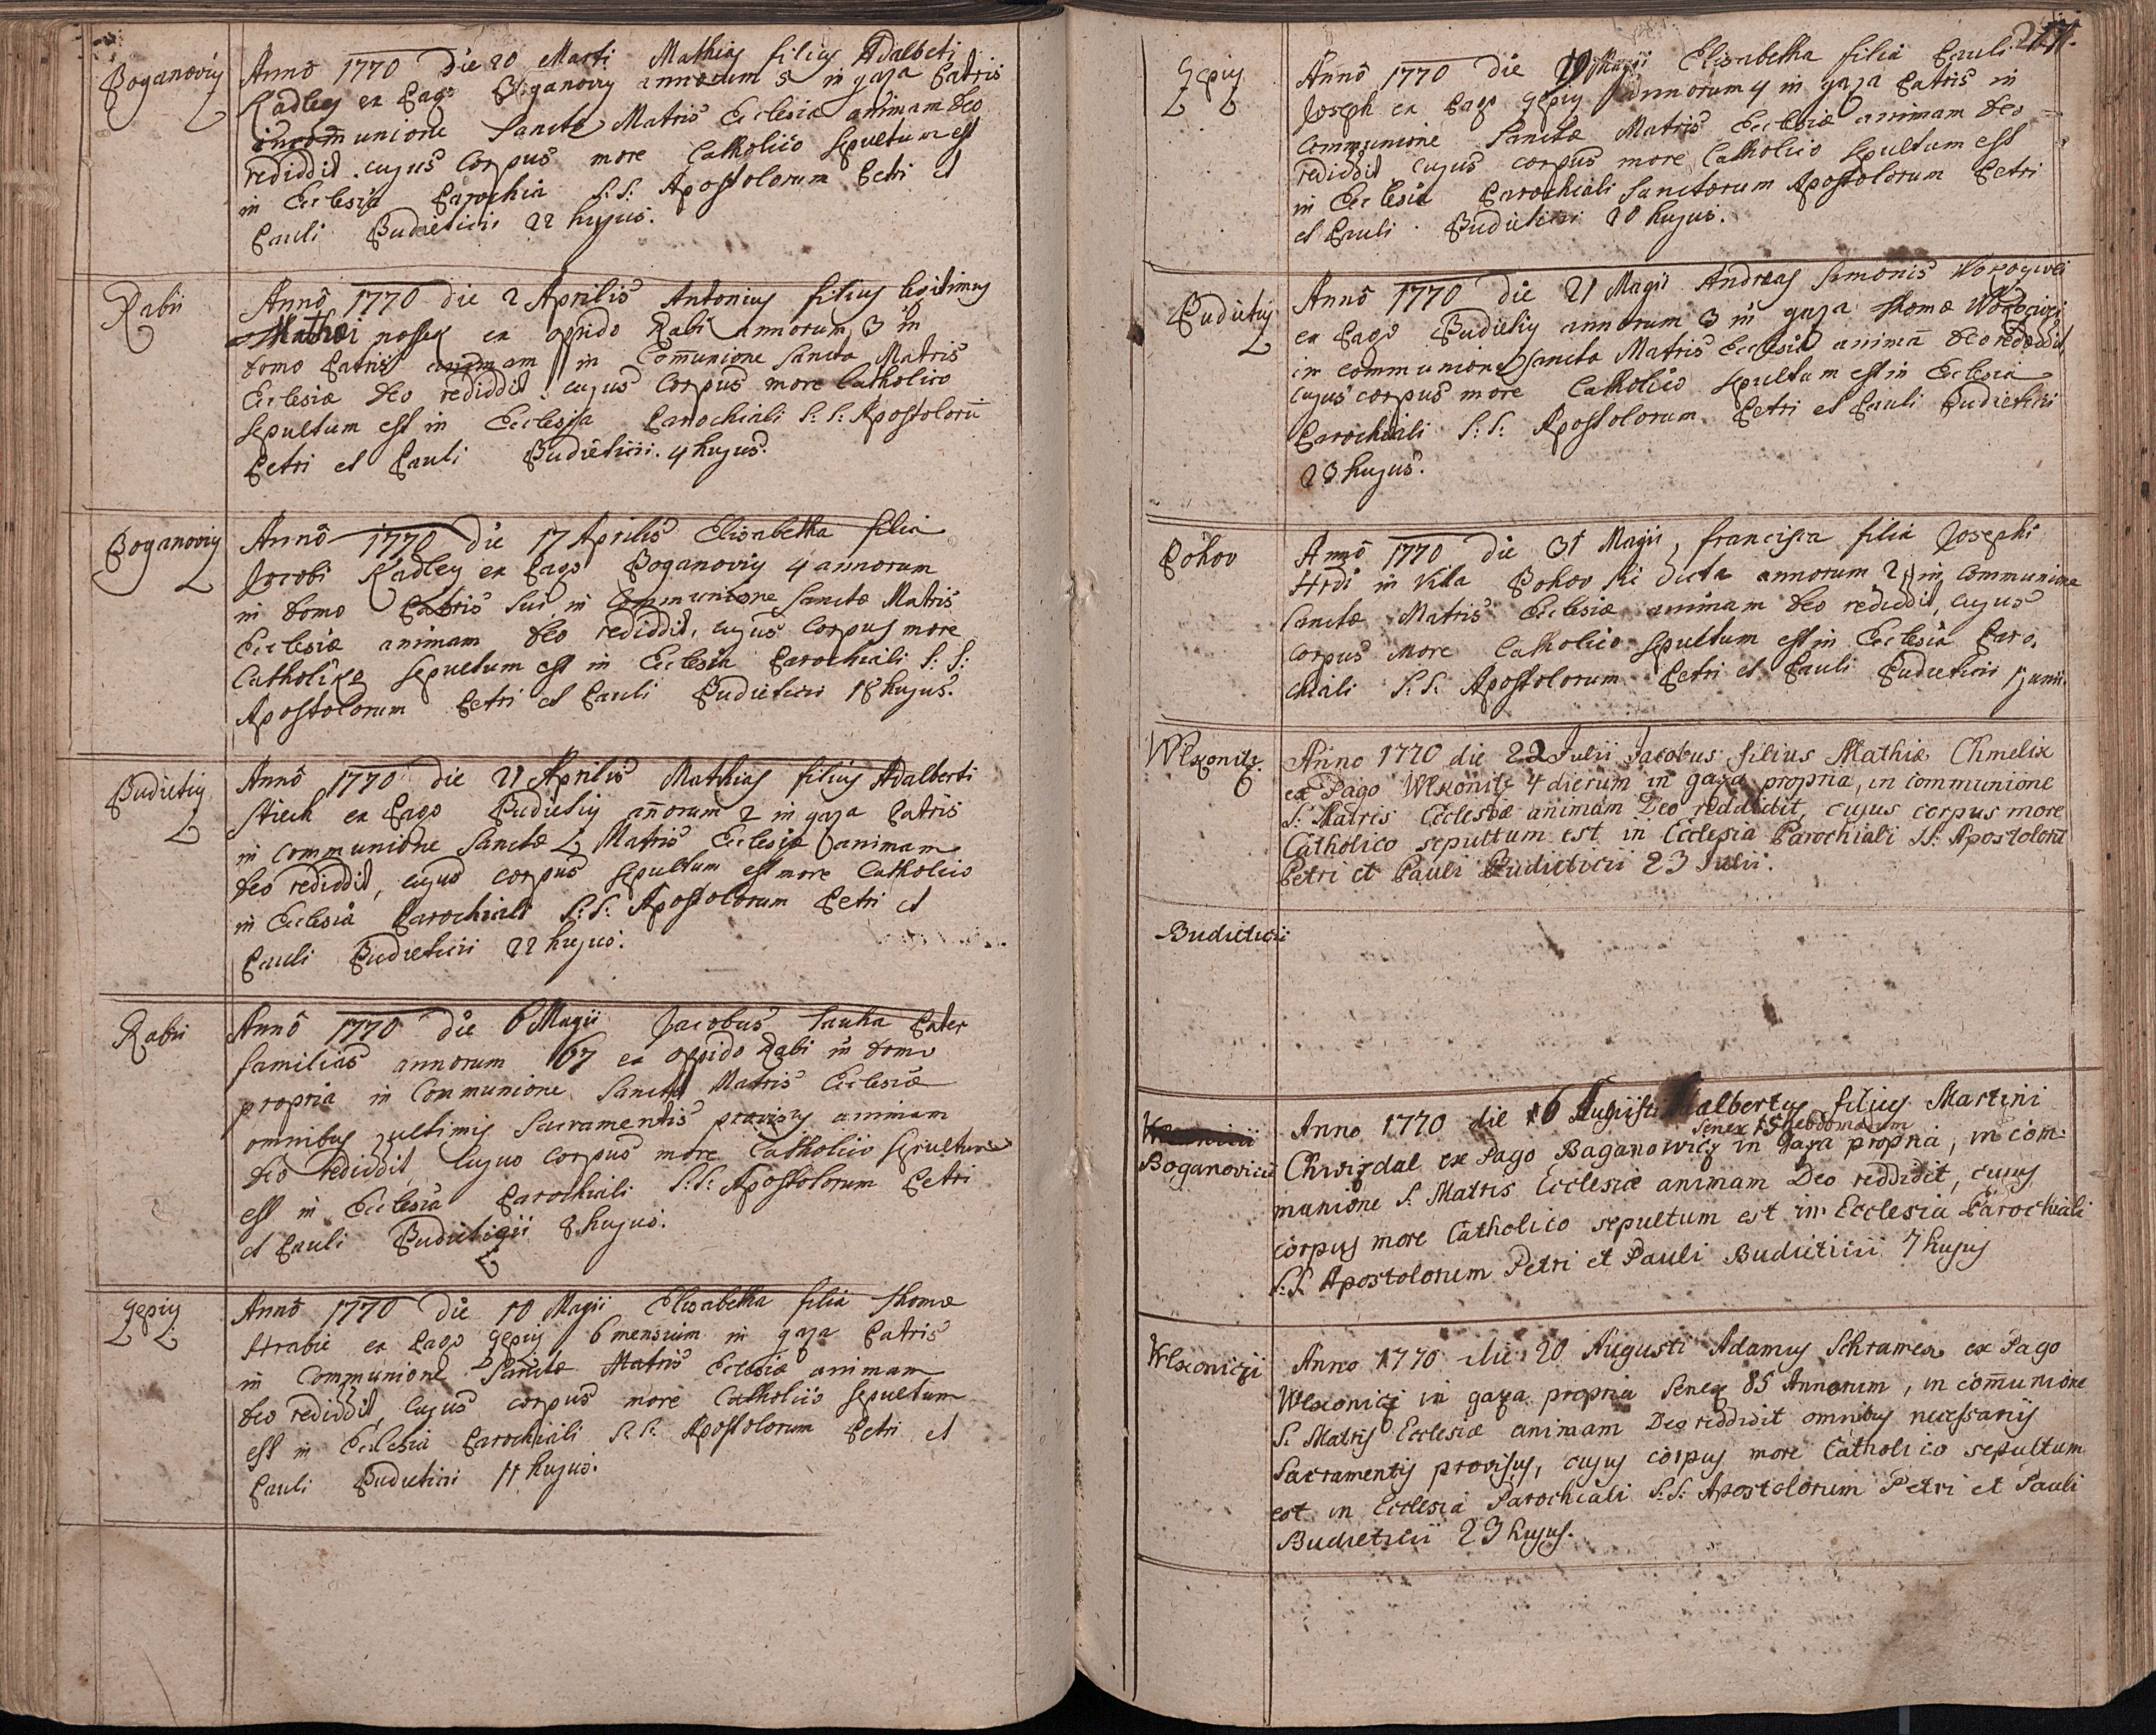 Boganoviy
Anno 1770 Die 20 Marti Mathias filius Adalbeti
Kadley ex Pago Boganoviy annorum 5 in gaza Patris
in communione Sancte Matris Ecclesia animam deo
rediddit. cujus Corpus more Catholico Sepultum est
in Ecclesia Parochia S: S: Apostolorum Petri et
Pauli Budieticii 22 hujus.
Rabii
Anno 1770 die 2 Aprilis Antonius filius legitimus
Mathæi ex opido Rabi annorum 3 in
domo Patris animam in Comunione Sancta Matris
Ecclesiæ deo rediddit: cujus Corpus more Catholico
Sepultum est in Ecclesia Parochiali S: S: Apostoloru
Petri et Pauli Budieticii. 4 hujus.
Boganoviy
Anno 1770 die 17 Aprilis Elisabetha filia
Jocobi Kadley ex Pago Boganoviy 4 annorum
in domo Patris sui in Communione Sanctæ Matris
Ecclesiæ animam deo rediddit, cujus Corpus more
Catholico sepultum est in Ecclesia Parochiali S: S:
Apostolorum Petri et Pauli Budieticii 18 hujus.
Budietiy
Anno 1770 die 21 Aprilis Mathias filius Adalberti
Stiech ex Pago Budietiy anorum 2 in gaza Patris
in communione Sanctæ Matris Ecclesiæ animam
deo rediddit, cujus corpus sepultum est more Catholico
in Ecclesia Parochiali S: S: Apostolorum Petri et
Pauli Budieticii 22 hujus.
Rabii
Anno 1770 die 6 Magii Jacobus Sauka Pater
familias annorum 67 ex oppido Rabi in domo
propria in Communione Sanctæ Matris Ecclesiæ
omnibus ultimis Sacramentis provisus animam
deo rediddit, cujus corpus more Catholico Sepultum
est in Ecclesia Parochiali S: S: Apostolorum Petri
et Pauli Budieticii 8 hujus.
Gepiy
Anno 1770 die 10 Magii Elisabetha filia Thomæ
Hrabie ex Pago Gepiy 6 mensium in gaza Patris
in Communione Sanctæ Matris Ecclesiæ animam
deo rediddit, cujus corpus more Catholico sepultum
est in Ecclesia Parochiali S: S: Apostolorum Petri et
Pauli Budieticii 11 hujus.
Gepiy
Anno 1770 die 19 Magii Elisabetha filia Pauli
Joseph ex Pago Gepiy annorum 4 in gaza Patris in
Communione Sanctæ Matris Ecclesiæ animam deo
rediddit, cujus corpus more Catholico sepultum est
in Ecclesia Parochiali Sanctorum Apostolorum Petri
et Pauli Budieticii 20 hujus.
Budietiy
Anno 1770 die 21 Magii Andreas Simonis
ex Pago Budietiy annorum 3 in gaza Thomæ
in communione Sancta Matris Ecclesia anima deo rediddit
cujus corpus more Catholico sepultum est in Ecclesia
Parochiali S: S: Apostolorum Petri et Pauli Budieticii
23 hujus.
Pohov
Anno 1770 die 31 Magii, francisca filia Josephi
Hrdi in Villa Pohov sic dicta annorum 2 in Communine
Sanctæ Matris Ecclesiæ animam deo rediddit, cujus
corpus more Catholico sepultum est in Ecclesia Paro,
chiali S: S: Apostolorum Petri et Pauli Budieticii 1 junii.
Wlkonitz.
Anno 1770 die 22 Julii Jacobus filius Mathiæ Chmelix
ex Pago Wlkonitz 4 dierum in gaza propria, in communione
S: Matris Ecclesiæ animam Deo reddidit, cujus corpus more
Catholico sepultum est in Ecclesia Parochiali SS: Apostolorū
Petri et Pauli Budieticii 23 Julii.
Budieticii
Boganovicii
Anno 1770 die 6 Augusti Adalbertus filius Martini
Senex 15 hebdomadum
Chwizdal ex Pago Baganowicz in gaza propria, in com:
munione S. Matris Ecclesiæ animam Deo reddidit, cujus
corpus more Catholico sepultum est in Ecclesia Parochiali
S: S. Apostolorum Petri et Pauli Budieticii 7 hujus
Wlkoniczi
Anno 1770 die 20 Augusti Adamus Schramek ex Pago
Wlkonicz in gaza propria Senex 85 Annorum, in comunione
S. Matris Ecclesiæ animam Deo reddidit omnibus necessariis
Sacramentis provisus, cujus corpus more Catholico sepultum
est in Ecclesia Parochiali S: S: Apostolorum Petri et Pauli
Budieticii 23 hujus.